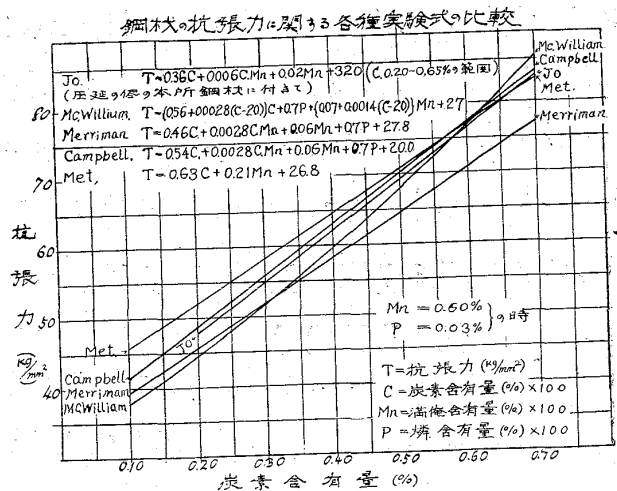 鋼材の抗張力に関する各種実験式の比較
Jo. T=0.36C+0.006C.Mn+0.02Mn+32.0 (C,0.20-0.65%の範囲)
(圧延の侭の本所鋼材に付きて)
Mc.William. T={0.56+0.0028(C-20)}C+0.7P+{0.07+0.0014(C-20)}Mn+27
Merriman T=0.46C+0.0028C.Mn+0.06Mn+0.7P+27.8
Campbell. T=0.54C+0.0028C.Mn+0.06Mn+0.7P+20.0
Met, T=0.63C+0.21Mn+26.8
Mc.William
Campbell
Jo
Met.
Merriman
80
70
60
50
40
抗張力
(kg/mm²)
Met.
Jo
Campbell
Merriman
McWilliam
Mn=0.60%
P=0.03%
}の時
T=抗張力(kg/mm²)
C=炭素含有量(%)×100
Mn=満俺含有量(%)×100
P=燐含有量(%)×100
0.10 0.20 0.30 0.40 0.50 0.60 0.70
炭素含有量(%)